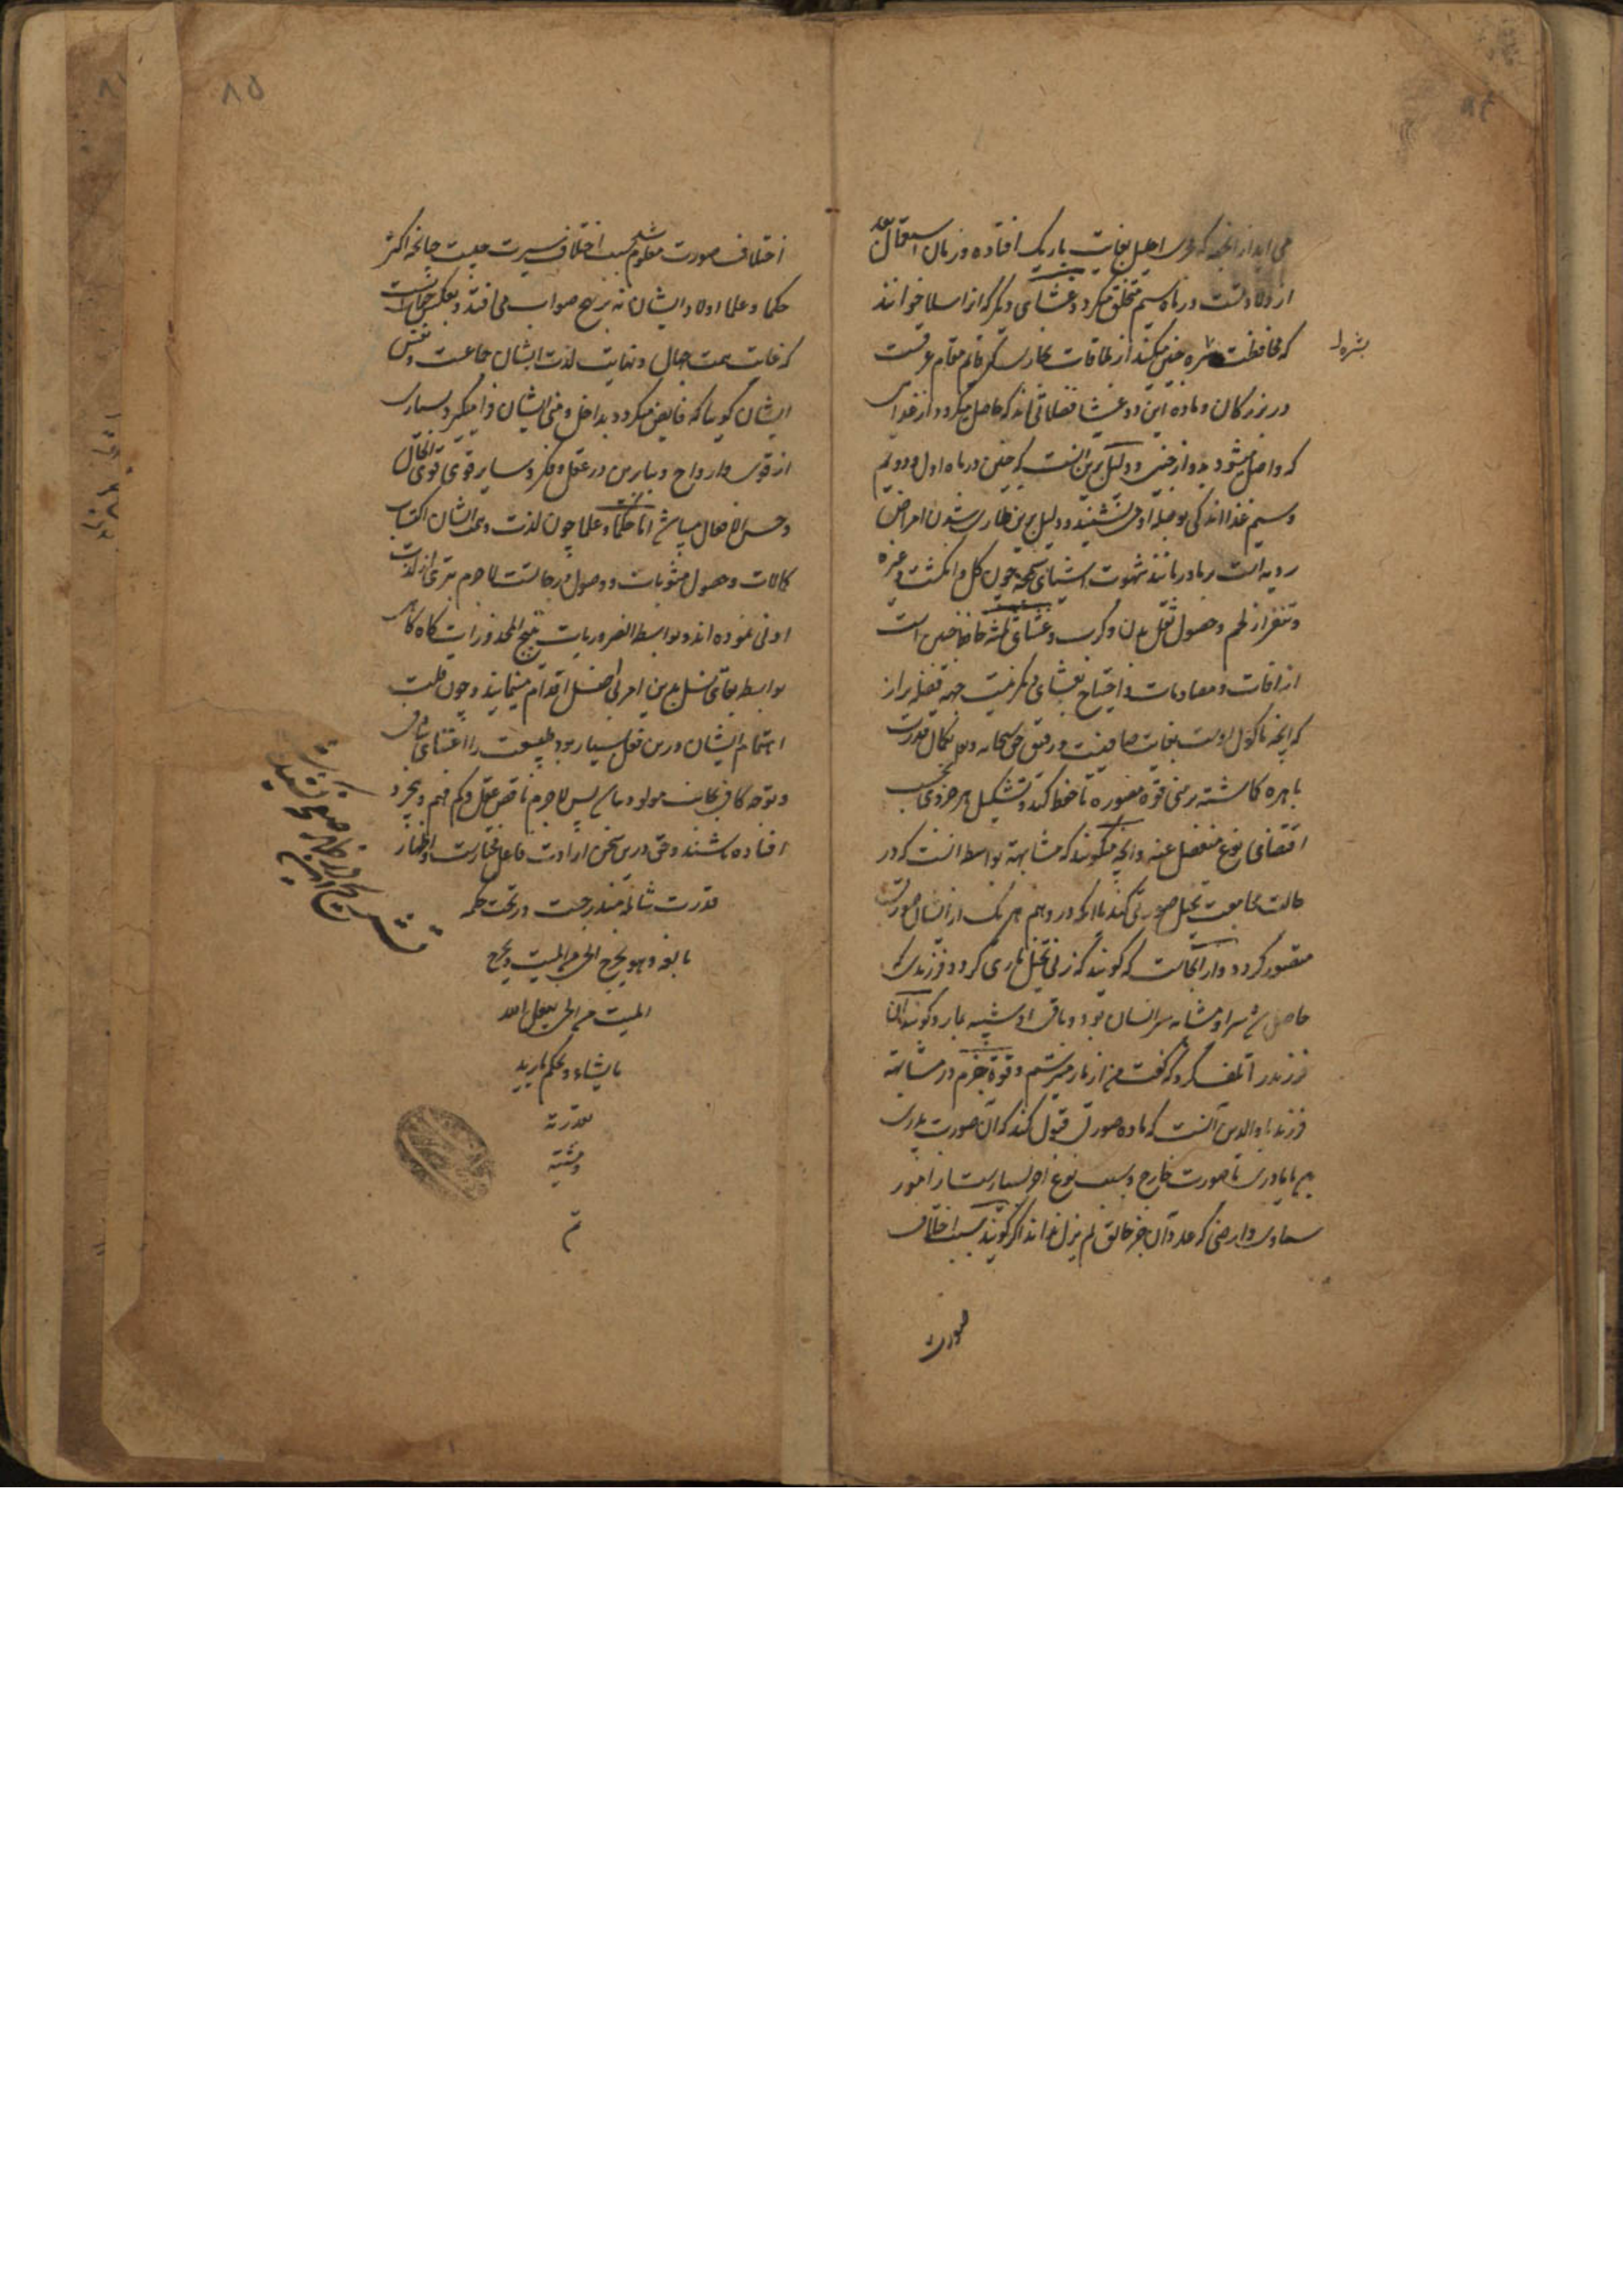 می آید از آنجه که مجری احلیل بغایت باریک افتاده و زمان استعمال بعد
از ولادتست در ماه سیم متخلق میگردد و غشای دیگر که انرا سلا خوانند
که محافظت بشره جنین میکند از ملاقات بخاری که قایم مقام عرقست
در بزرگان و ماده این دو غشا فضلاتی اند که حاصل میگردد از غذای
که واصل میشود بدو از حیض و دلیل برین انست که جنین در ماه اول و دویم
و سیم غذا اندکی بوسیله او می نشیند و دلیل برین طاری شدن امراض
ردیه است بمادر مانند شهوت اشیای سمجه چون گل و انگشت و غیره
و تنفر از لحم و حصول ثقل بدن و کرب و غشای ثلثه حافظ جنین است
از افات و مصادمات و احتیاج بغشای دیگر نیست جهة فضله براز
که آنچه ماکول اوست بغایت صافیست و رقیق حق سبحانه و تعالی بکمال قدرت
باهره گماشته بر منی قوه مصوره تا تخطیط کند و تشکیل هر جزوی بحسب
اقتضای نوع منفصل عنه و آنچه میگویند که مشابهة بواسطه انست که در
حالت مجامعت تخیل صورتی کند یا انکه در وهم هر یک از ایشان صورتی
متصور گردد و از آنجاست که گویند که زنی تخیل ماری کرد و فرزندی که
حاصل شد سر او مشابه سر انسان بود و باقی او شبیه بمار و گویند آن
فرزند را تلف کرد و گفت من از مار میترسم و قوة جزم در مشابهة
فرزند با والدین آنست که ماده صورتی قبول کند که آن صورت پدری
یا مادری یا صورت خارج و بسبب نوع اخر بسیارست از امور
سماوی و ارضی که عدد آن جز خالق لم یزل نداند اگر گویند سبب اختلاف
صورت
بشره
۸۵
اختلاف صورت معلوم شد سبب اختلاف سیرت چیست چنانچه اکثر
حکما و علما اولاد ایشان نه بر نهج صواب می افتد و بعکس جهال است
که غایت همت جهال و نهایت لذت ایشان جماعست و نفس
ایشان گویا که فایض میگردد بداخل و منی ایشان فرا میگیرد بسیاری
از قوی و ارواح و بنابرین در عقل و فکر و سایر قوی قوی الحال
و حسن الافعال میباشد اما حکما و علما چون لذت و همت ایشان اکتساب
کمالات و حصول مثوبات و وصول درجاتست لاجرم تبری از لذت
ادنی نموده اند و بواسطه الضروریات تبیح المحذورات گاه گاهی
بواسطه بقای نسل بدین امر بی اصل اقدام مینمایند و چون قلت
اهتمام ایشان درین فعل بسیار بود طبیعت را اعتنای شافی
و توجه کافی بجانب مولود نباشد پس لاجرم ناقص عقل و کم فهم و بیخرد
افتاده باشند و حق درین سخن ارادت فاعل مختارست و اظهار
قدرت شامله مندرجست در تحت حکمه
بالغه و هو یخرج الحی من المیت و یخرج
المیت من الحی یفعل الله
ما یشاء و یحکم ما یرید
بقدرته
و مشیته
تم